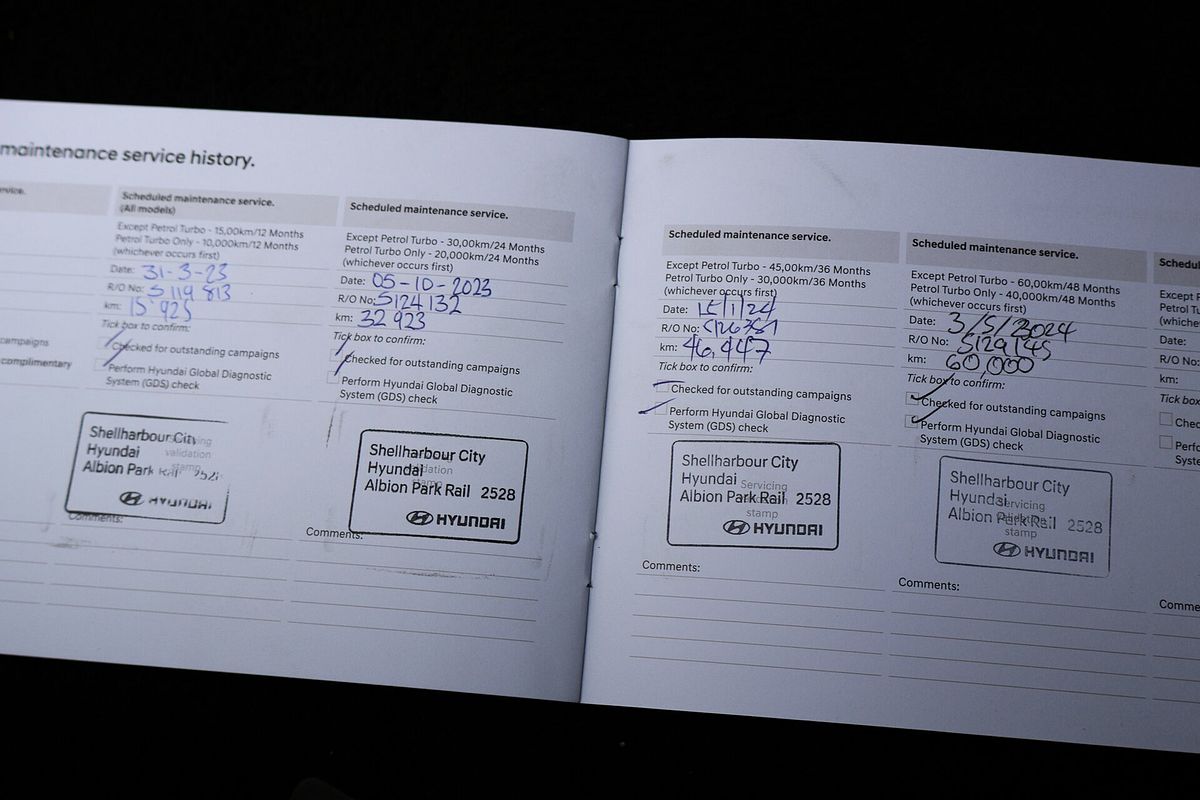 maintenance service history.
service.
campaigns
complimentary
Scheduled maintenance service.
(All models)
Except Petrol Turbo - 15,00km/12 Months
Petrol Turbo Only - 10,000km/12 Months
(whichever occurs first)
Date: 31-3-23
R/O No: S119813
km: 15 925
Tick box to confirm:
Checked for outstanding campaigns
Perform Hyundai Global Diagnostic
System (GDS) check
Shellharbour City
Hyundai
Albion Park Rail 2528
HYUNDAI
Servicing
validation
stamp
Comments:
Scheduled maintenance service.
Except Petrol Turbo - 30,00km/24 Months
Petrol Turbo Only - 20,000km/24 Months
(whichever occurs first)
Date: 05-10-2023
R/O No: S124132
km: 32 923
Tick box to confirm:
Checked for outstanding campaigns
Perform Hyundai Global Diagnostic
System (GDS) check
Shellharbour City
Hyundai
Albion Park Rail 2528
HYUNDAI
validation
stamp
Comments:
Scheduled maintenance service.
Except Petrol Turbo - 45,00km/36 Months
Petrol Turbo Only - 30,000km/36 Months
(whichever occurs first)
Date: 15/1/24
R/O No:
km: 46,447
Tick box to confirm:
Checked for outstanding campaigns
Perform Hyundai Global Diagnostic
System (GDS) check
Shellharbour City
Hyundai
Albion Park Rail 2528
HYUNDAI
Servicing
stamp
Comments:
Scheduled maintenance service.
Except Petrol Turbo - 60,00km/48 Months
Petrol Turbo Only - 40,000km/48 Months
(whichever occurs first)
Date: 3/5/3024
R/O No: S129145
km: 60,000
Tick box to confirm:
Checked for outstanding campaigns
Perform Hyundai Global Diagnostic
System (GDS) check
Shellharbour City
Hyundai
Albion Park Rail 2528
HYUNDAI
Servicing
validation
stamp
Comments:
Schedul
Except P
Petrol Tu
(whiche
Date:
R/O No:
km:
Tick box
Chec
Perfo
Syste
Comme